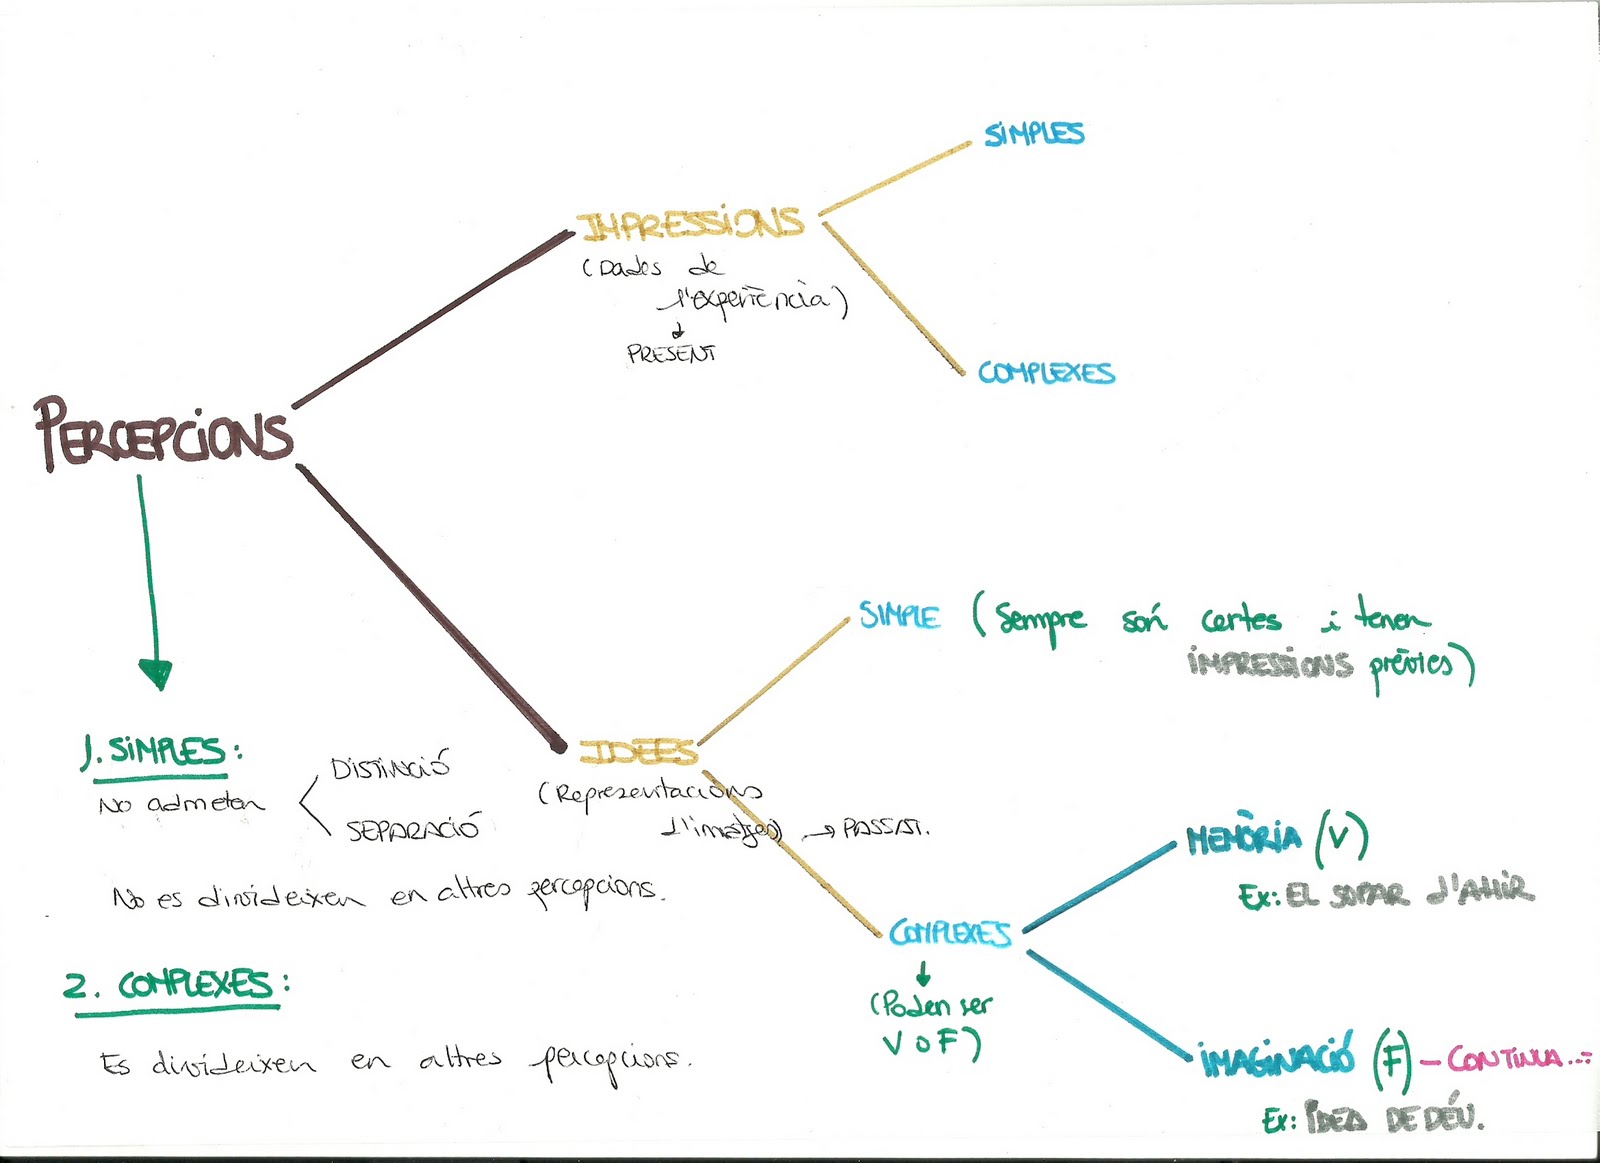 SIMPLES
IMPRESSIONS
(Dades de
l'experiència)
PRESENT
COMPLEXES
PERCEPCIONS
SIMPLE (Sempre són certes i tenen
IMPRESSIONS prèvies)
1. SIMPLES:
No admeten
DISTINCIÓ
SEPARACIÓ
No es divideixen en altres percepcions.
IDEES
(Representacions
d'imatges) → PASSAT.
MEMÒRIA (V)
Ex: EL SOPAR d'AHIR
COMPLEXES
(Poden ser
V o F)
2. COMPLEXES:
Es divideixen en altres percepcions.
IMAGINACIÓ (F) – CONTINUA...
Ex: IDEA DE DÉU.